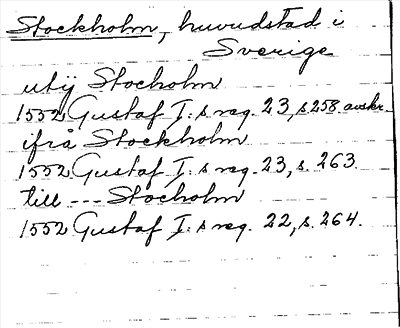 Stockholm, huvudstad i
Sverige
utij Stocholm
1552 Gustaf I:s reg. 23, s. 258 avskr.
ifrå Stockholm
1552 Gustaf I:s reg. 23, s. 263.
till --- Stocholm
1552 Gustaf I:s reg. 22, s. 264.